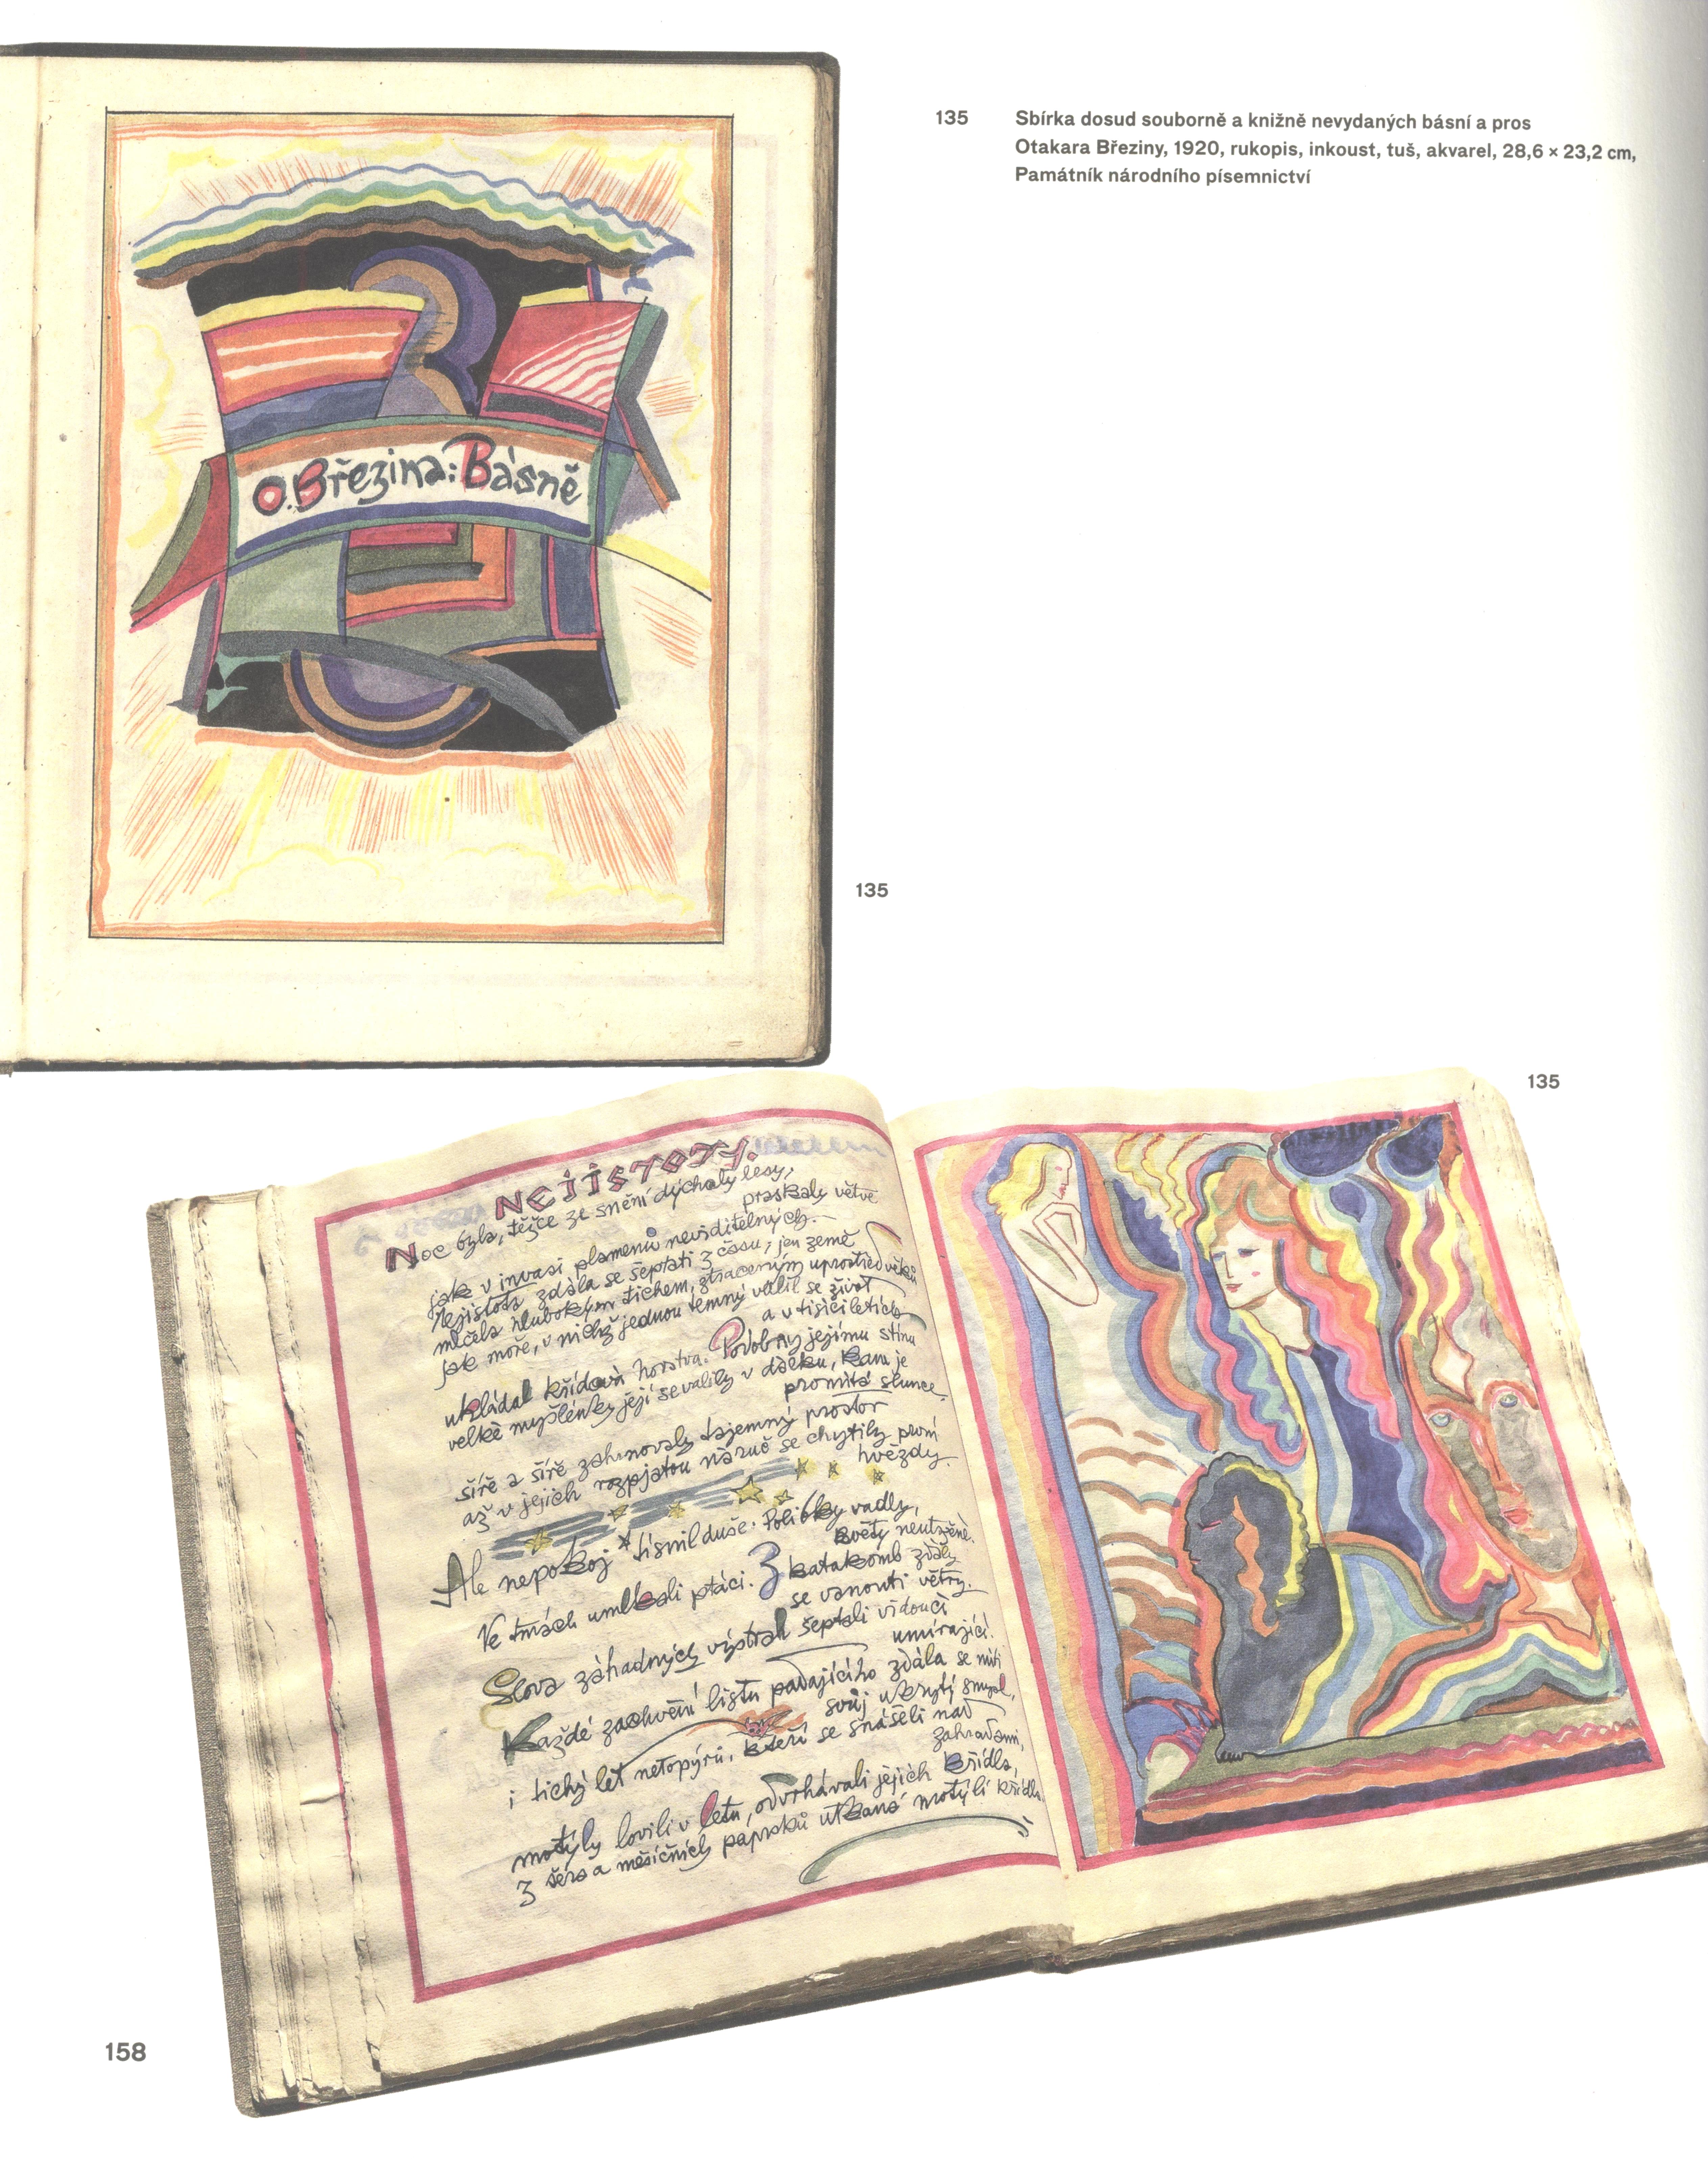 135
Sbírka dosud souborně a knižně nevydaných básní a pros
Otakara Březiny, 1920, rukopis, inkoust, tuš, akvarel, 28,6 × 23,2 cm,
Památník národního písemnictví
O. Březina: Básně
135
135
NEJISTOTY.
Noc byla, těžce ze snění dýchaly lesy,
praskaly větve
jak v invasi plamenů neviditelných. –
Nejistota zdála se šeptati z času; jen země
mlčela hlubokým tichem, ztraceným uprostřed věků
jak moře, v nichž jednou temný válil se život
a v tisíciletích
ukládal křídová horstva. Podobny jejímu stínu
velké myšlénky její se valily v dálku, kam je
promítá slunce,
šíře a šíře zahrnovaly tajemný prostor
až v jejich rozpjatou náruč se chytily první
hvězdy.
Ale nepokoj tísnil duše. Polibky vadly,
květy neutržené.
Ve tmách umlkali ptáci. Z katakomb zdály
se vanouti větry.
Slova záhadných výstrah šeptali vidoucí
umírající.
Každé zachvění listu padajícího zdála se míti
svůj ukrytý smysl,
i tichý let netopýrů, kteří se snášeli nad
zahradami,
motýly lovili v letu, odvrhávali jejich křídla,
z šera a měsíčních paprsků utkaná motýlí křídla.
158